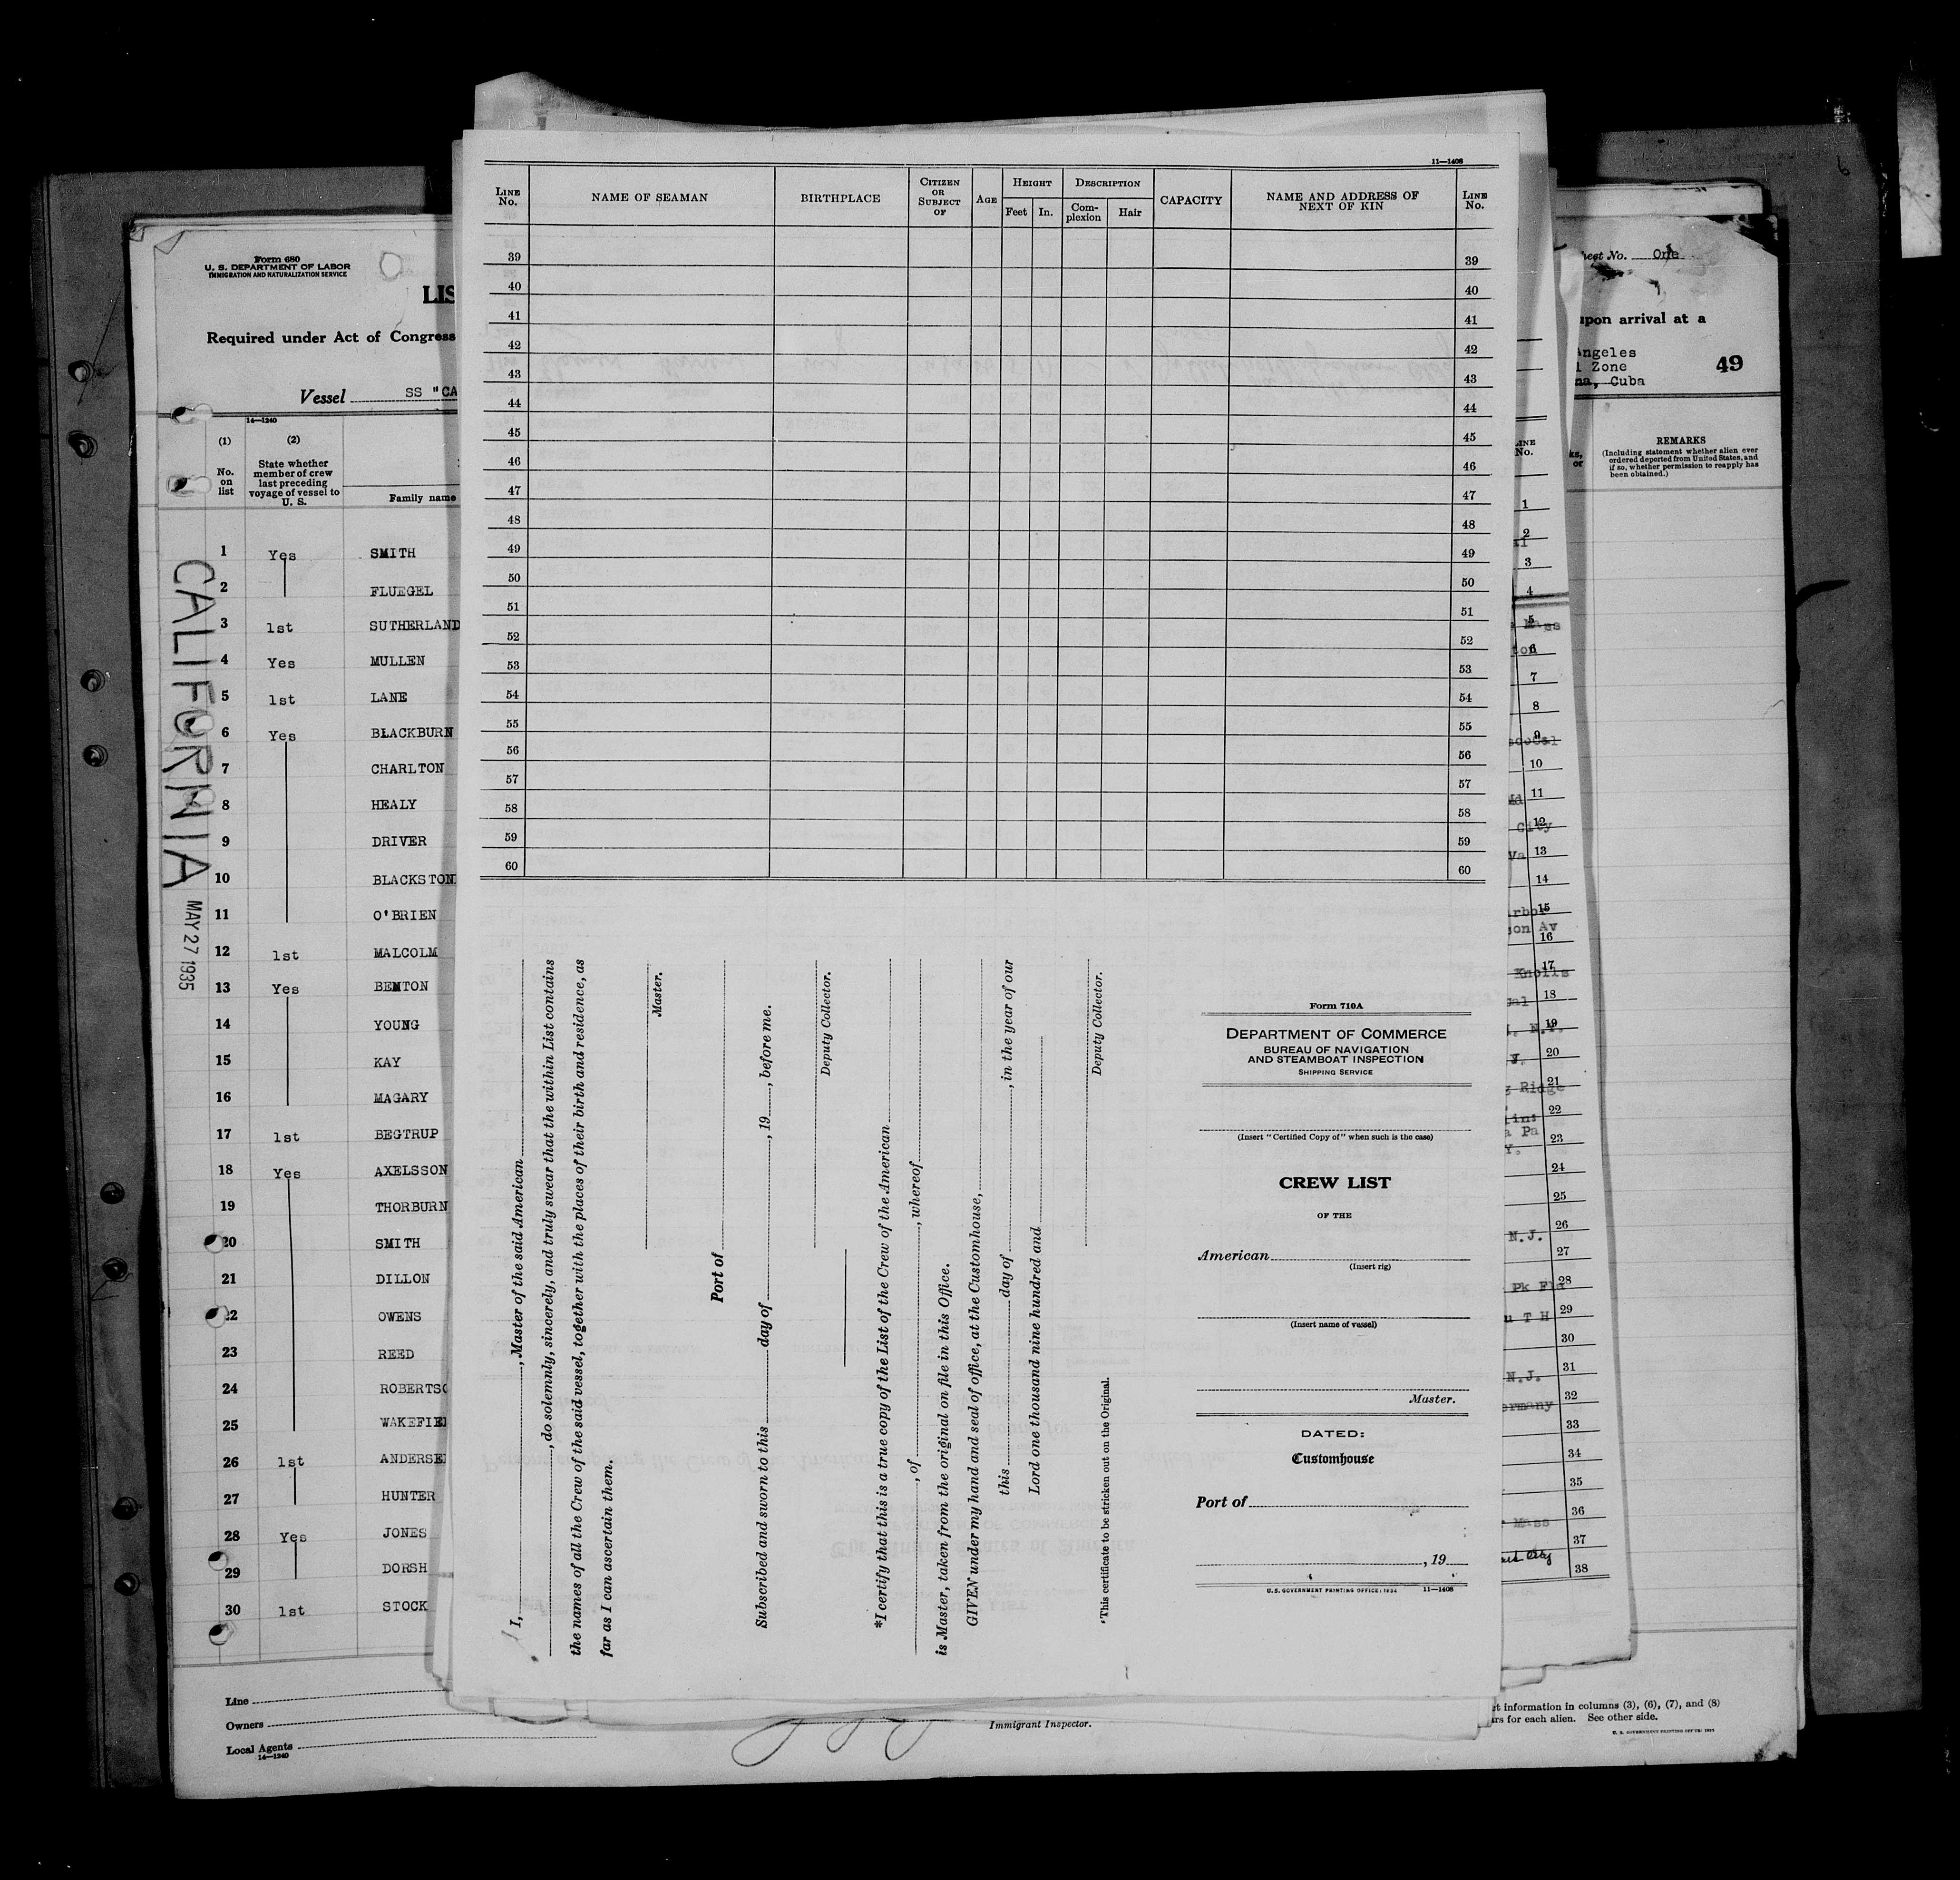 Form 680
U. S. DEPARTMENT OF LABOR
IMMIGRATION AND NATURALIZATION SERVICE
LIS
Required under Act of Congress
Vessel SS "CA
14—1240
(1) (2)
No. on list
State whether member of crew last preceding voyage of vessel to U. S.
Family name
1 Yes SMITH
2 FLUEGEL
3 1st SUTHERLAND
4 Yes MULLEN
5 1st LANE
6 Yes BLACKBURN
7 CHARLTON
8 HEALY
9 DRIVER
10 BLACKSTON
11 O'BRIEN
12 1st MALCOLM
13 Yes BENTON
14 YOUNG
15 KAY
16 MAGARY
17 1st BEGTRUP
18 Yes AXELSSON
19 THORBURN
20 SMITH
21 DILLON
22 OWENS
23 REED
24 ROBERTSO
25 WAKEFIE
26 1st ANDERSE
27 HUNTER
28 Yes JONES
29 DORSH
30 1st STOCK
CALIFORNIA MAY 27 1935
Line
Owners
Local Agents
14—1240
Immigrant Inspector.
11—1408
LINE No.
NAME OF SEAMAN
BIRTHPLACE
CITIZEN OR SUBJECT OF
AGE
HEIGHT
Feet In.
DESCRIPTION
Complexion Hair
CAPACITY
NAME AND ADDRESS OF NEXT OF KIN
LINE No.
39 39
40 40
41 41
42 42
43 43
44 44
45 45
46 46
47 47
48 48
49 49
50 50
51 51
52 52
53 53
54 54
55 55
56 56
57 57
58 58
59 59
60 60
I, , Master of the said American
, do solemnly, sincerely, and truly swear that the within List contains
the names of all the Crew of the said vessel, together with the places of their birth and residence, as
far as I can ascertain them.
Master.
Port of
Subscribed and sworn to this day of , 19 , before me.
Deputy Collector.
*I certify that this is a true copy of the List of the Crew of the American
, of , whereof
is Master, taken from the original on file in this Office.
GIVEN under my hand and seal of office, at the Customhouse,
this day of , in the year of our
Lord one thousand nine hundred and
Deputy Collector.
*This certificate to be stricken out on the Original.
Form 710A
DEPARTMENT OF COMMERCE
BUREAU OF NAVIGATION
AND STEAMBOAT INSPECTION
SHIPPING SERVICE
(Insert "Certified Copy of" when such is the case)
CREW LIST
OF THE
American
(Insert rig)
(Insert name of vessel)
Master.
DATED:
Customhouse
Port of
, 19
U.S. GOVERNMENT PRINTING OFFICE: 1934 11—1408
LINE No.
1
2
3
4
5 Mass
6 ton
7
8
9
10
11 Md
12 City
13 Va
14
15
16 son Av
17 Knolls
18 Cal
19 N.Y.
20
21 Ridge
22
23 Pa
24
25
26 N.J.
27
28 Pk Fla
29 T H
30
31 N.J.
32 ermany
33
34
35
36 Mass
37
38
heet No. One
upon arrival at a
Angeles
l Zone
na, Cuba
49
ks,
or
REMARKS
(Including statement whether alien ever
ordered deported from United States, and
if so, whether permission to reapply has
been obtained.)
st information in columns (3), (6), (7), and (8)
rs for each alien. See other side.